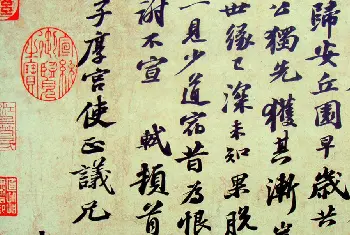 歸安丘園早歲共
公獨先獲其漸
世緣已深未知果脫
一見少道宿昔為恨
謝不宣 軾頓首
子厚宮使正議兄